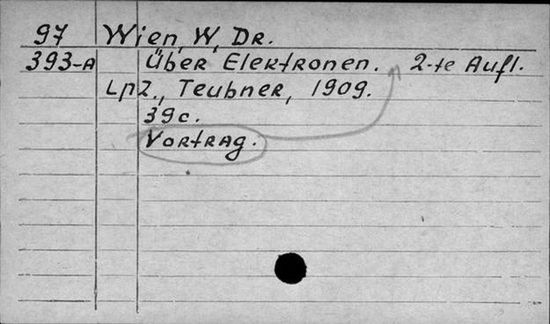 97 Wien, W, Dr.
393-A Über Elektronen. 2-te Aufl.
Lpz., Teubner, 1909.
39c.
Vortrag.